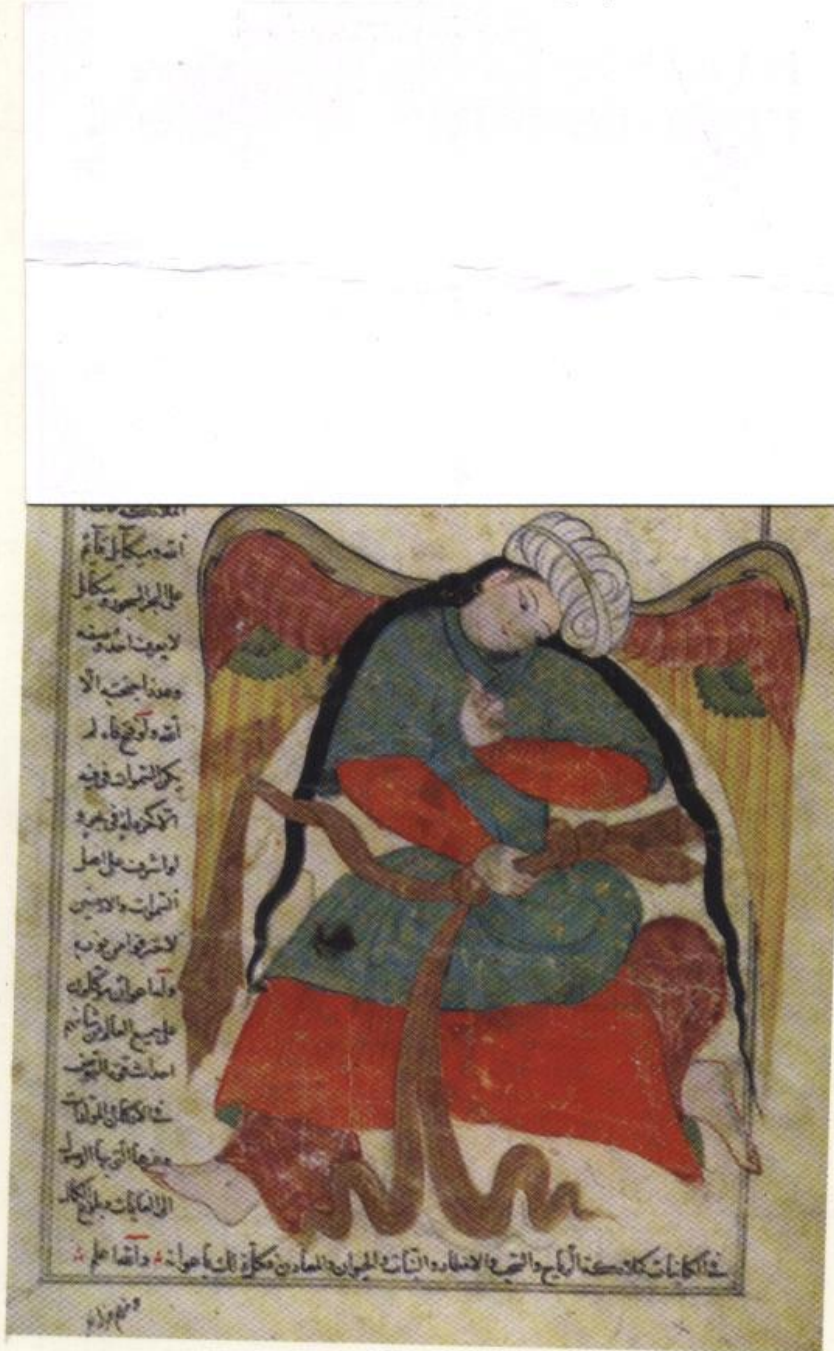 الله وميكائيل قائم
على البحر المسجور وميكائيل
لا يعرف احد وصفه
وعدد اجنحته الا
الله ولو فتح فاه لم
يكن السموات فى فيه
الا كخردلة فى بحر و
لو اشرف على اهل
السموات والارضين
لاحترقوا من نوره
واما اعوانه موكلون
على جميع العالم من شانهم
احداث قوى
فى الاركان والمولدات
وغيرها التى بها الوصول
الى الغايات وبلوغ الكمال
فى الكائنات كملائكة الرياح والسحب والامطار والنبات والحيوان والمعادن وكل ذلك باعوانه والله اعلم